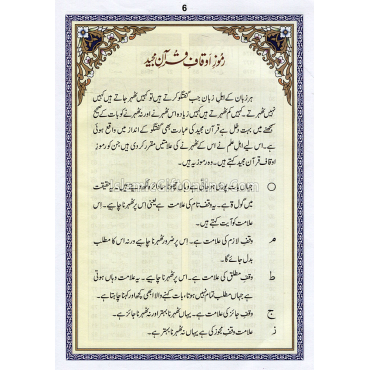 6
رموزِ اَوقافِ قرآن مجید
ہر زبان کے اہلِ زبان جب گفتگو کرتے ہیں تو کہیں ٹھہر جاتے ہیں کہیں
نہیں ٹھہرتے۔ کہیں کم ٹھہرتے ہیں کہیں زیادہ اس ٹھہرنے اور نہ ٹھہرنے کو بات کے صحیح
سمجھنے میں بہت دخل ہے قرآن مجید کی عبارت بھی گفتگو کے انداز میں واقع ہوئی
ہے۔ اس لیے اہل علم نے اس کے ٹھہرنے کی علامتیں مقرر کر دی ہیں جن کو رموزِ
اوقاف قرآن مجید کہتے ہیں۔ وہ رموز یہ ہیں۔
○ جہاں بات پوری ہو جاتی ہے وہاں چھوٹا سا دائرہ ہے۔ یہ حقیقت
میں گول ۃ ہے۔ یہ وقف تام کی علامت ہے یعنی اس پر ٹھہرنا چاہیے۔ اس
علامت کو آیت کہتے ہیں۔
م وقف لازم کی علامت ہے۔ اس پر ضرور ٹھہرنا چاہیے ورنہ اس کا مطلب
بدل جائے گا۔
ط وقف مطلق کی علامت ہے۔ اس پر ٹھہرنا چاہیے۔ یہ علامت وہاں ہوتی
ہے جہاں مطلب تمام نہیں ہوتا، بات کہنے والا ابھی کچھ اور کہنا چاہتا ہے۔
ج وقف جائز کی علامت ہے۔ یہاں ٹھہرنا بہتر اور نہ ٹھہرنا جائز ہے۔
ز علامت وقف مجوز کی ہے یہاں نہ ٹھہرنا بہتر ہے۔